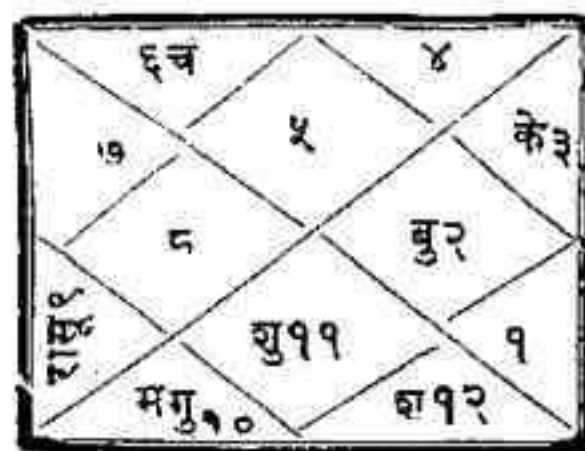 ६च
४
५
७
के३
८
बु२
रासू९
शु११
१
मंगु१०
श१२